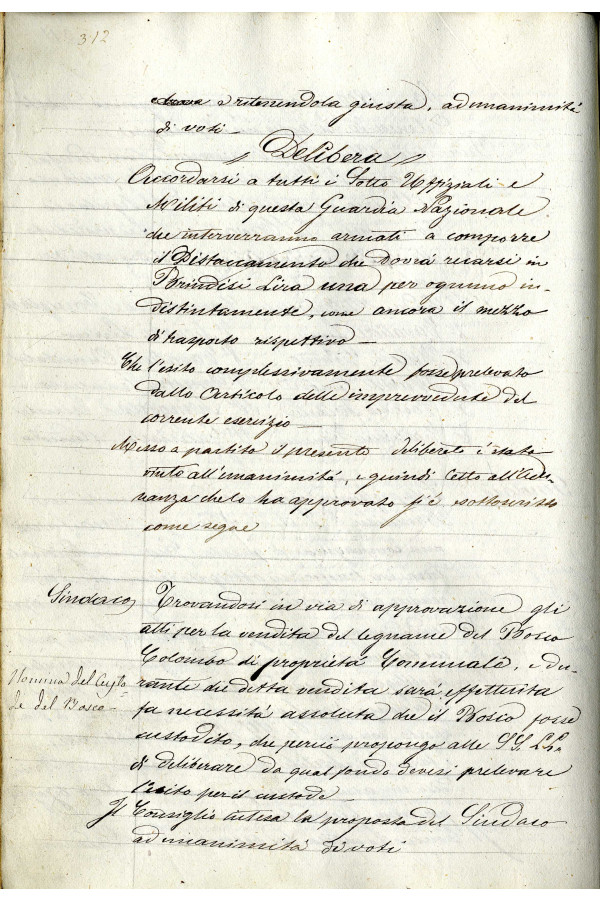 312
e ritenendola giusta, ad unanimità
di voti —
Delibera
Accordarsi a tutti i Sotto Uffiziali e
Militi di questa Guardia Nazionale
che interverranno armati a comporre
il Distaccamento che dovrà recarsi in
Brindisi Lira una per ognuno in-
distintamente, come ancora il mezzo
di trasporto rispettivo —
Che l'esito complessivamente fosse prelevato
dallo Articolo delle imprevvedute del
corrente esercizio —
Messo a partito il presente deliberato è stato
vinto all'unanimità, e quindi letto all'Adu-
nanza che lo ha approvato si è sottoscritto
come segue
Sindaco
Trovandosi in via di approvazione gli
atti per la vendita del legname del Bosco
Colombo di proprietà Comunale, e du-
Nomina del Custo-
de del Bosco —
rante che detta vendita sarà effettuita
fa necessità assoluta che il Bosco fosse
custodito, che perciò propongo alle SS. LL.
di deliberare da qual fondo devesi prelevare
l'esito per il custode —
Il Consiglio intesa la proposta del Sindaco
ad unanimità di voti